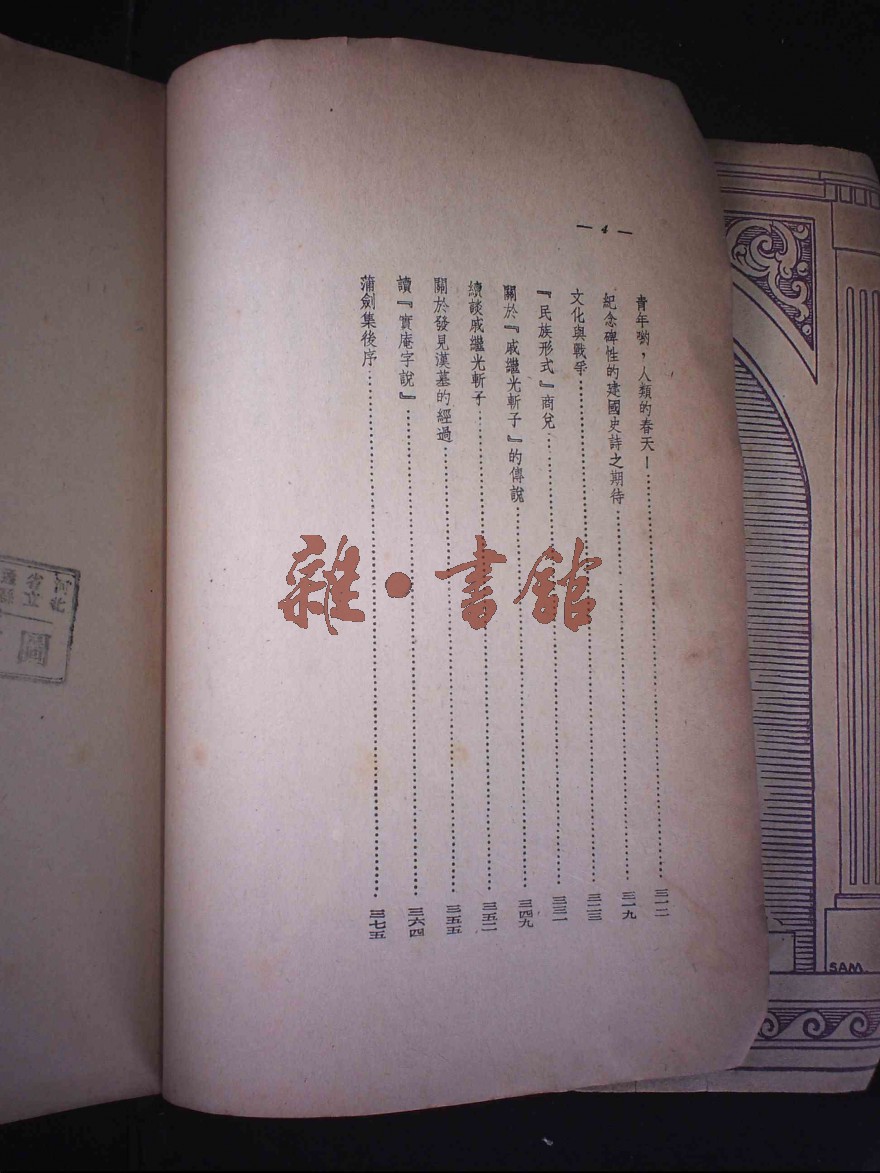 — 4 —
青年喲，人類的春天！……三一二
紀念碑性的建國史詩之期待……三一九
文化與戰爭……三二三
『民族形式』商兌……三三一
關於『戚繼光斬子』的傳說……三四九
續談戚繼光斬子……三五二
關於發見漢墓的經過……三五五
讀『實庵字說』……三六四
蒲劍集後序……三七五
雜·書館
河北
省立
SAM.